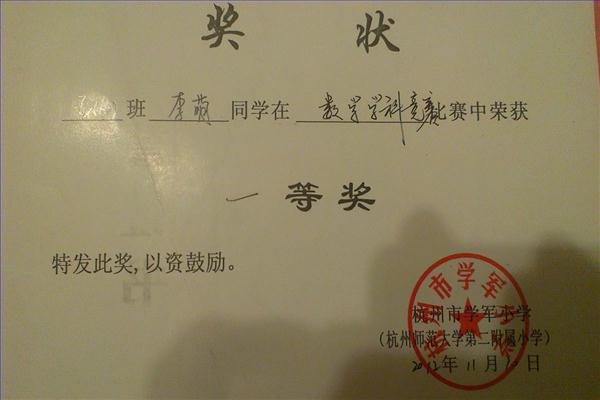 奖 状
班 李萌 同学在 数学学科竞赛比赛中荣获
一等奖
特发此奖,以资鼓励。
杭州市学军小学
(杭州师范大学第二附属小学)
2012年11月10日
杭州市学军小学